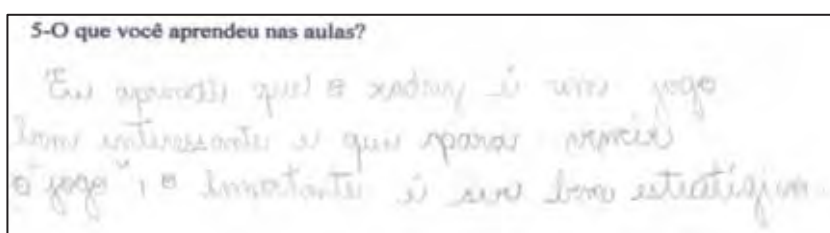 5-O que você aprendeu nas aulas?
Eu aprendi que o xadrez é um jogo
bem interessante e que para vencer
o "jogo", o é ser bom